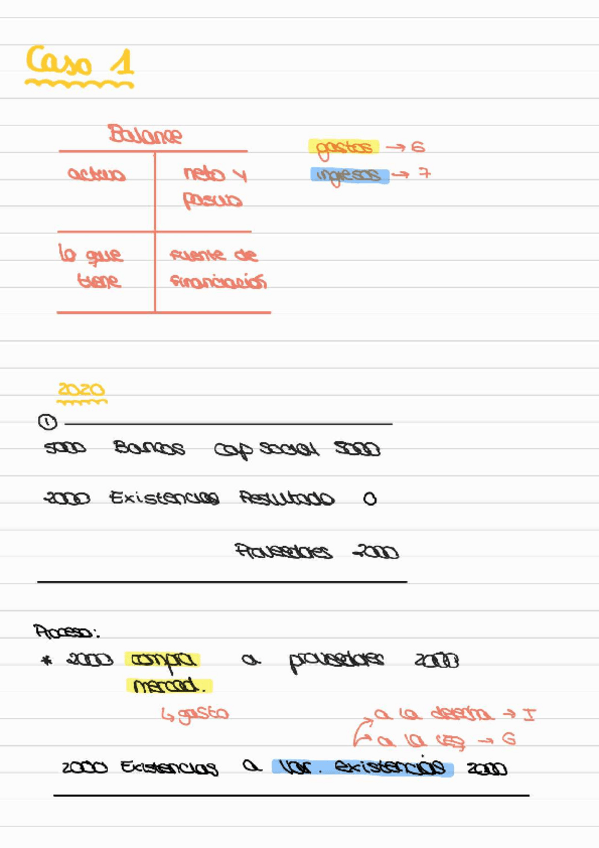 Caso 1
Balance
activo neto y pasivo
lo que tiene fuente de financiación
gastos → 6
ingresos → 7
2020
①
5000 Bancos cap social 5000
2000 Existencias Resultado 0
Proveedores 2000
Proceso:
* 2000 compra a proveedores 2000
mercad.
↳ gasto
a la decha → I
a la izq → G
2000 Existencias a var. existencias 2000